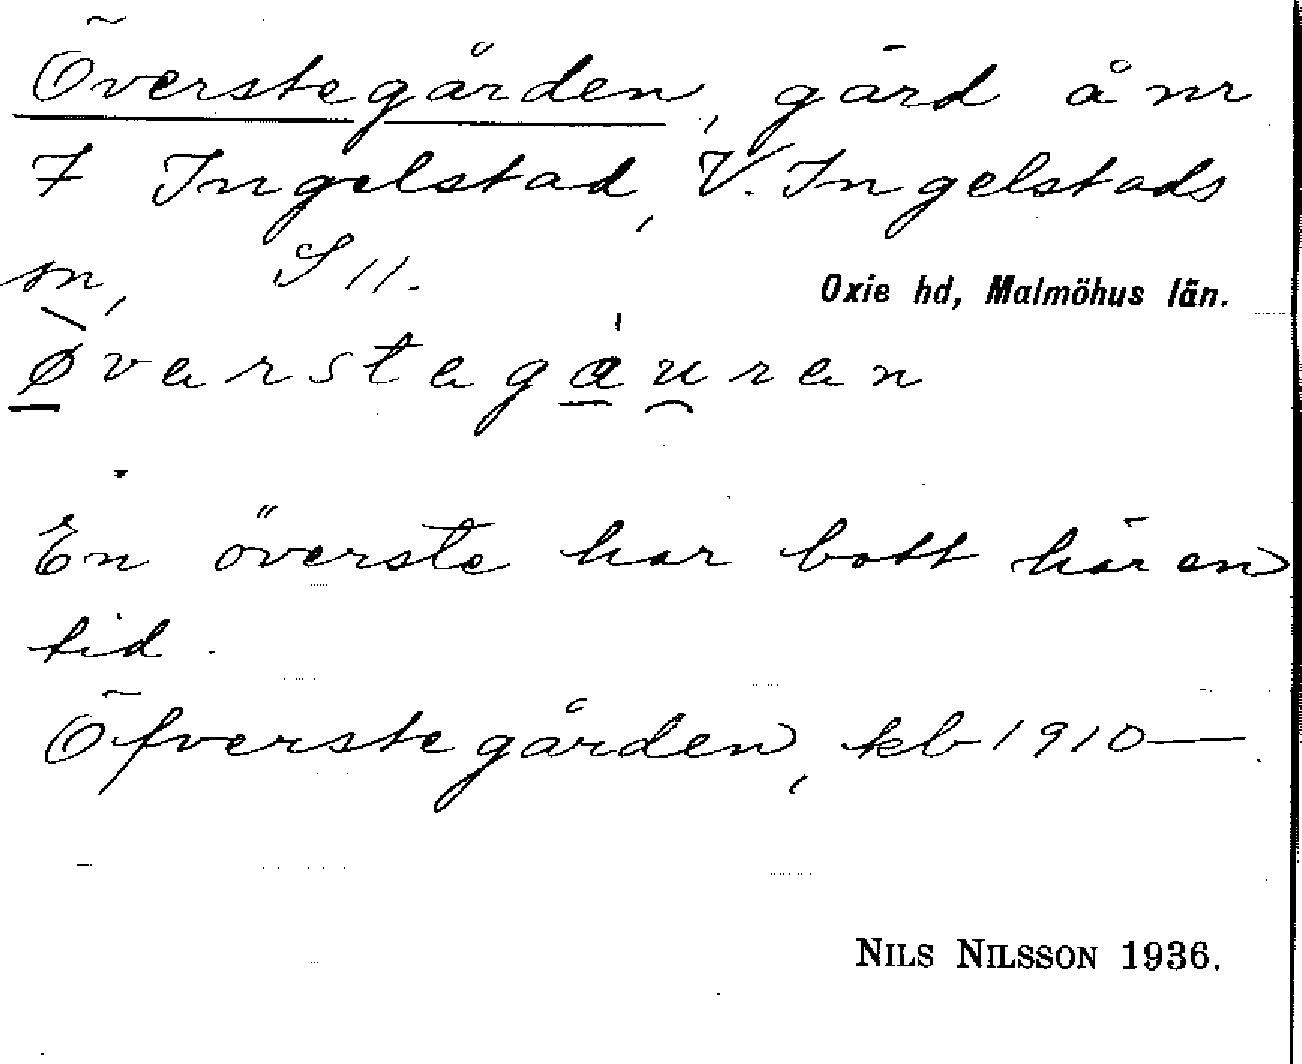 Överstegården, gård å nr
7 Ingelstad, V. Ingelstads
sn, S 11.
Oxie hd, Malmöhus län.
ø̱̀varstaga̱̍u̯ran
En överste har bott här en
tid.
Öfverstegården, kb 1910—
NILS NILSSON 1936.